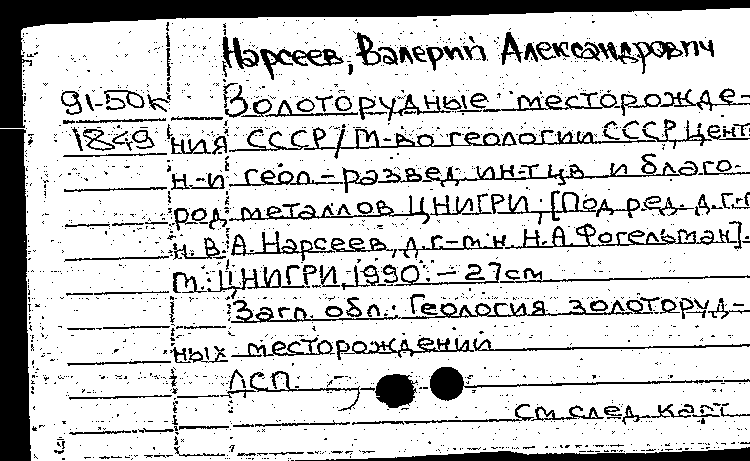 Нарсеев, Валерий Александрович
91-50к Золоторудные месторожде-
1849 ния СССР / М-во геологии СССР, Цент
н.-и геол.-развед. ин-т цв. и благо-
род. металлов ЦНИГРИ; [Под ред. д.г.-
н. В.А. Нарсеев, д.г.-м.н. Н.А. Фогельман].
М.: ЦНИГРИ, 1990. - 27см
Загл. обл.: Геология золоторуд-
ных месторождений
ДСП.
См след карт